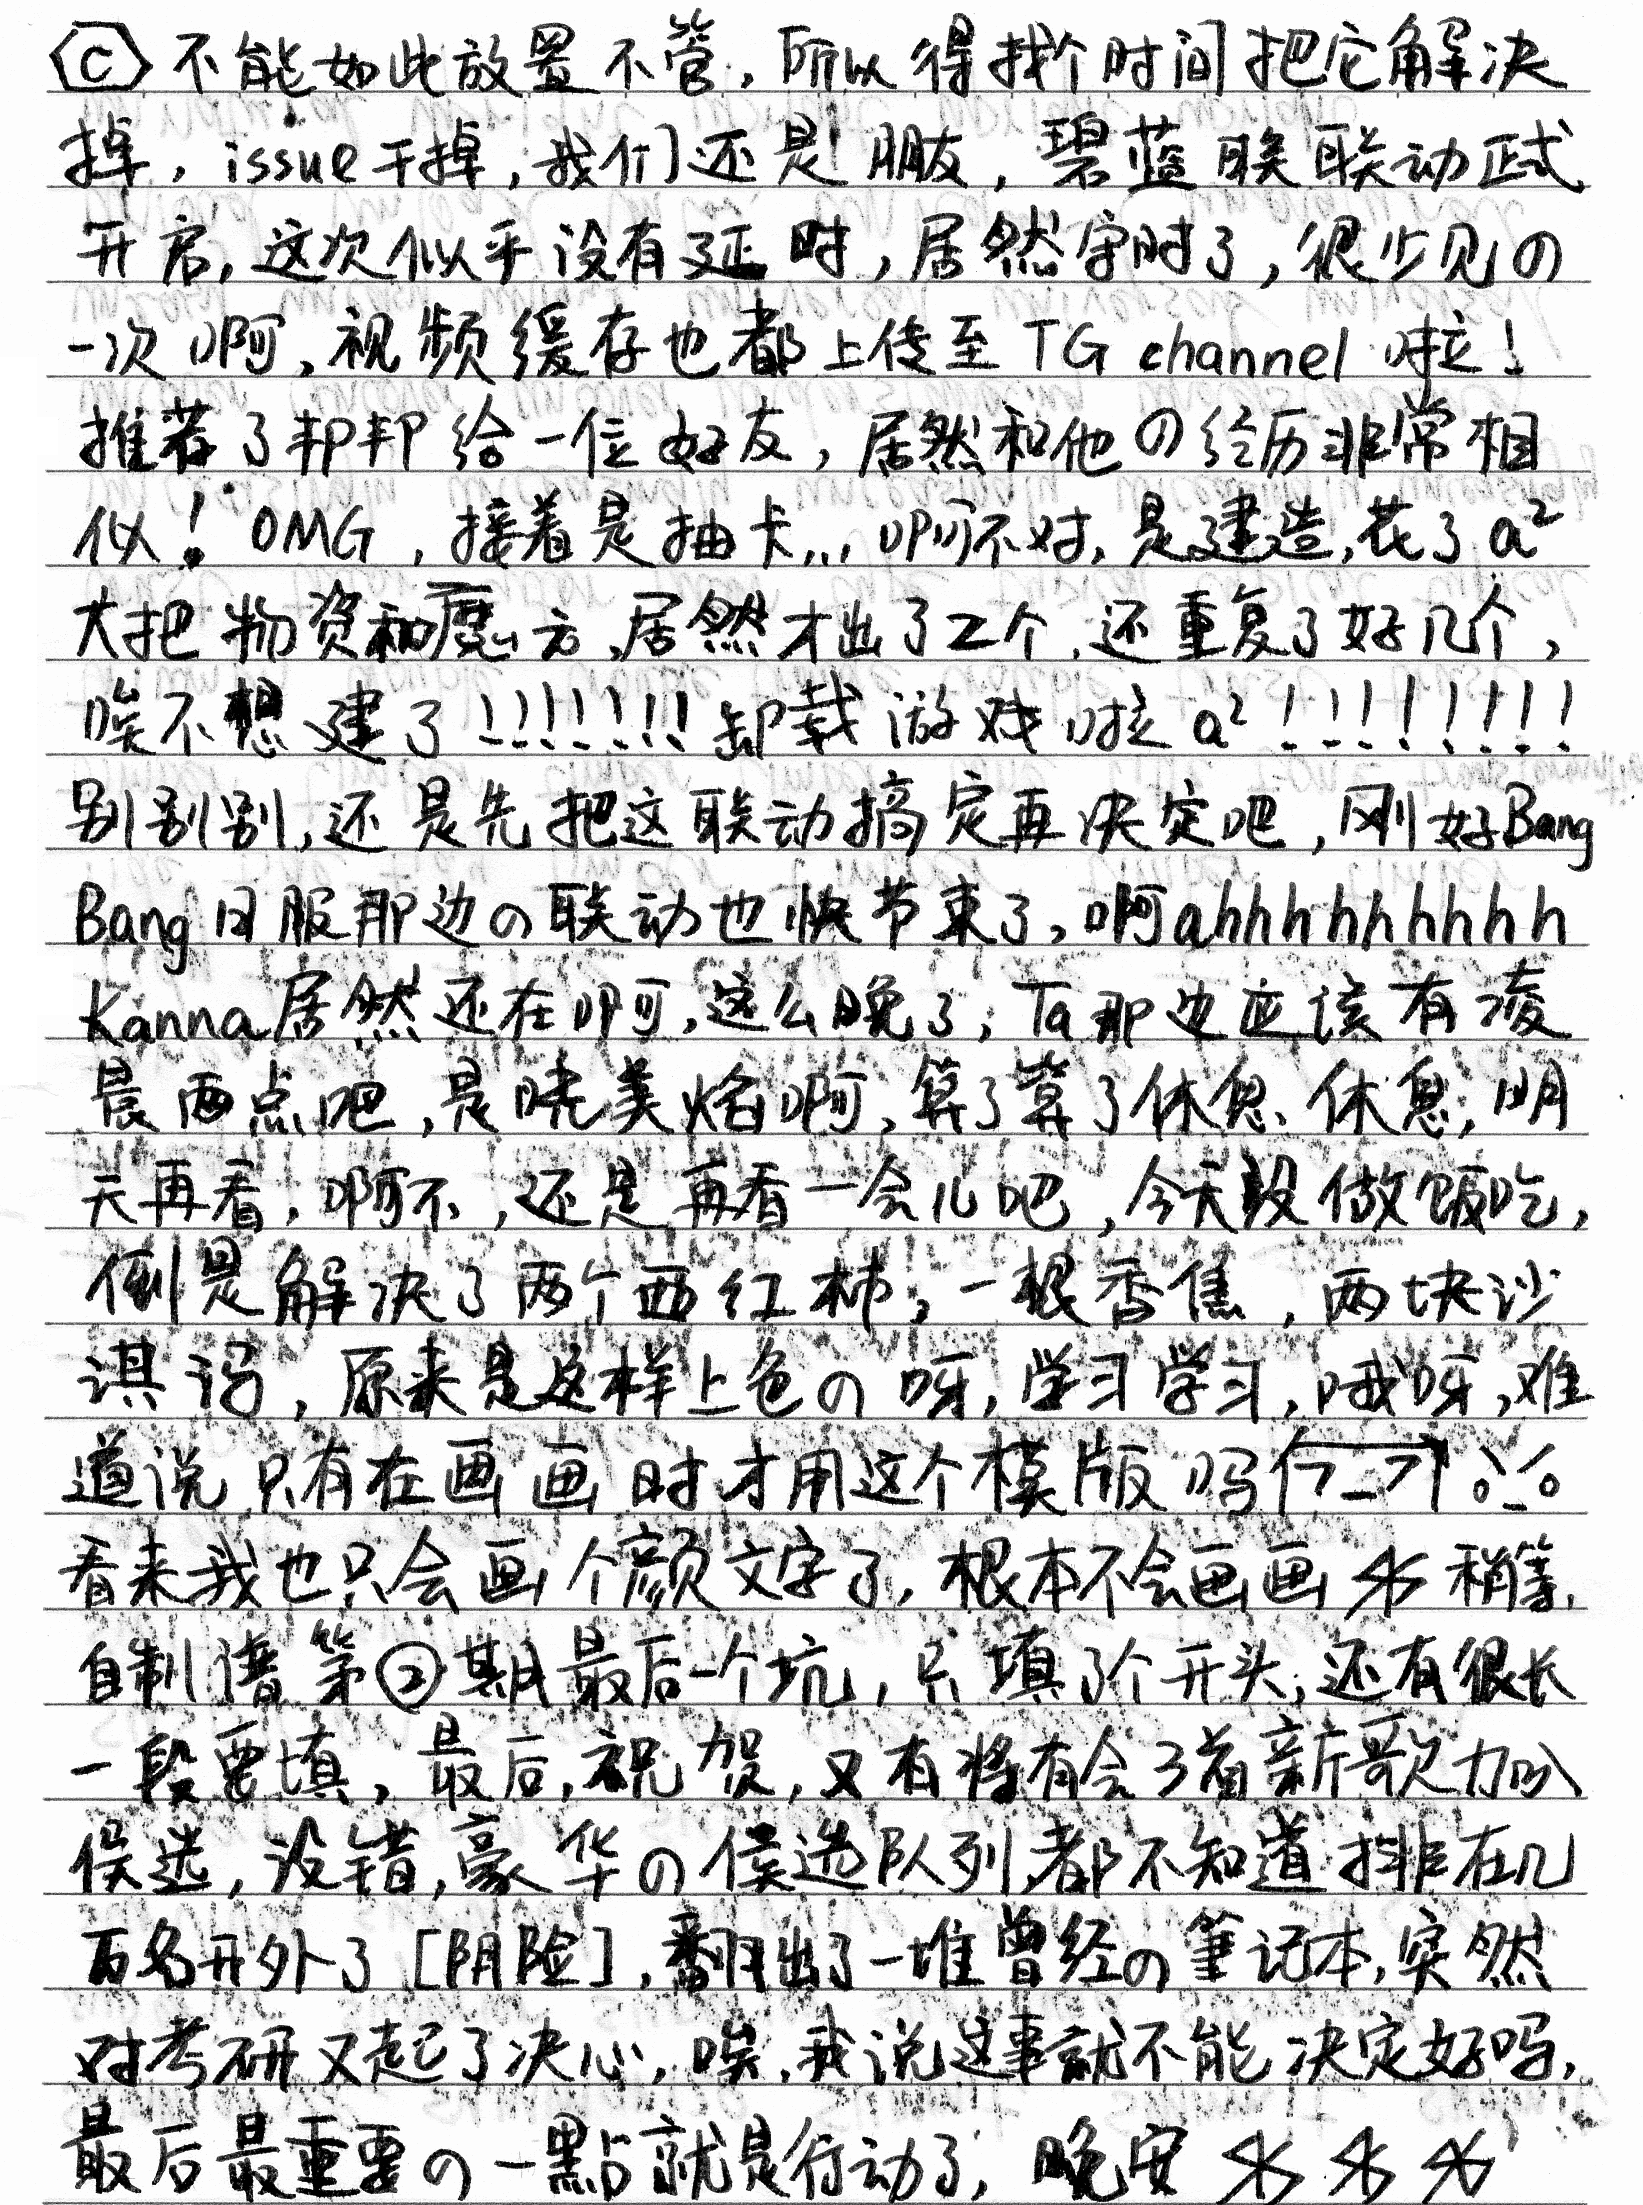 C 不能如此放置不管，所以得找个时间把它解决
掉，issue干掉，我们还是朋友，碧蓝联动正式
开启，这次似乎没有延时，居然守时了，很少见の
一次啊，视频缓存也都上传至 TG channel 啦！
推荐了邦邦给一位好友，居然和他の经历非常相
似！OMG，接着是抽卡...啊不对，是建造，花了a²
大把物资和魔方，居然才出了2个，还重复了好几个，
唉不想建了！！！！！！！卸载游戏啦a²！！！！！！！！
别别别，还是先把这联动搞定再决定吧，刚好Bang
Bang日服那边の联动也快节束了，啊ahhhhhhhhh
Kanna居然还在啊，这么晚了，Ta那边应该有凌
晨两点吧，是晓美焰啊，算了算了休息、休息，明
天再看，啊不，还是再看一会儿吧，今天没做饭吃，
倒是解决了两个西红柿，一根香蕉，两块沙
淇玛，原来是这样上色の呀，学习学习，哦呀，难
道说只有在画画时才用这个模版吗
看来我也只会画个颜文字了，根本不会画画 稍等，
自制谱第②期最后一个坑，只填了个开头，还有很长
一段要填，最后，祝贺，又有将有会3首新歌加入
候选，没错，豪华の候选队列，都不知道排在几
百名开外了[阴险]，翻出了一堆曾经の筆记本，突然
对考研又起了决心，唉，我说这事就不能决定好吗，
最后最重要の一點就是行动了，晚安